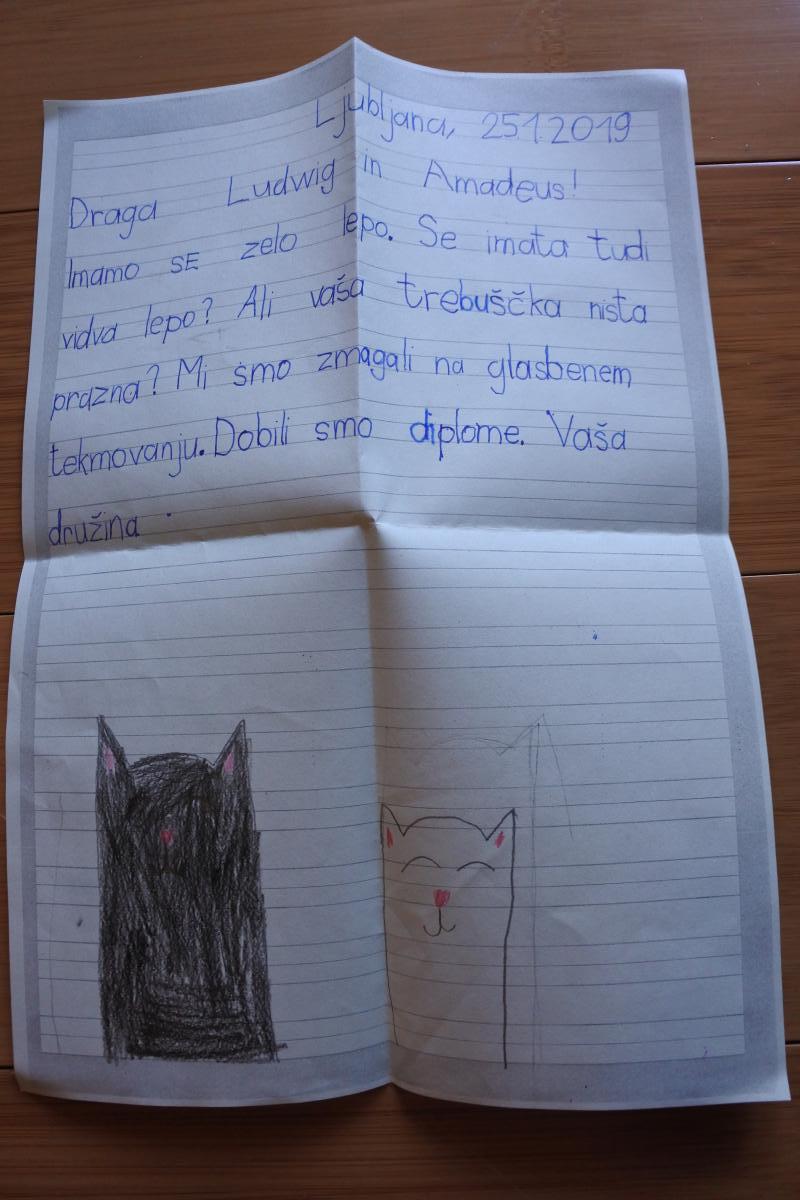 Ljubljana, 25.1.2019
Draga Ludwig in Amadeus!
Imamo SE zelo lepo. Se imata tudi
vidva lepo? Ali vaša trebuščka nista
prazna? Mi smo zmagali na glasbenem
tekmovanju. Dobili smo diplome. Vaša
družina.